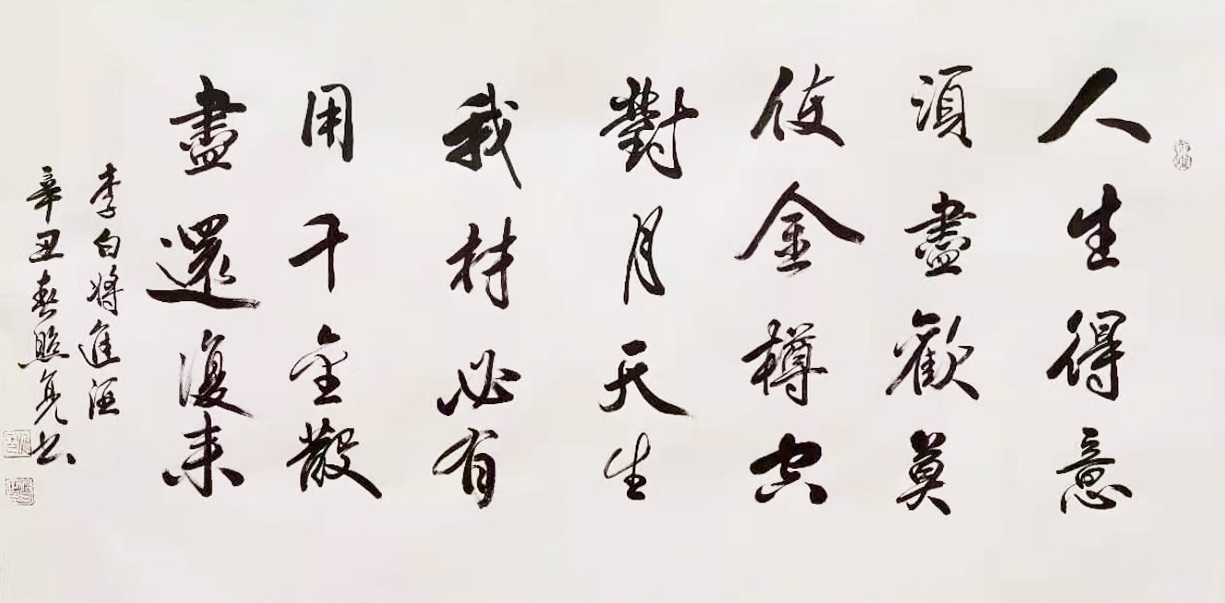 人生得意
須盡歡莫
使金樽空
對月天生
我材必有
用千金散
盡還復来
李白將進酒
辛丑春照亮书